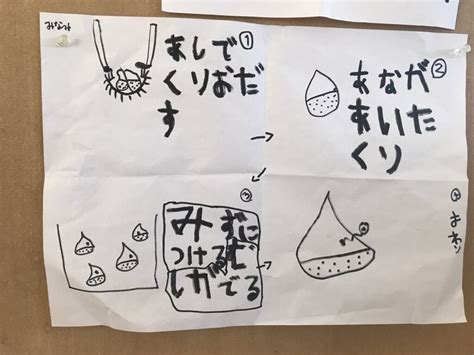 みなつみ
①
あしで
くりおだ
す
②
あなが
あいた
くり
③
みずに
つけるむ
しがでる